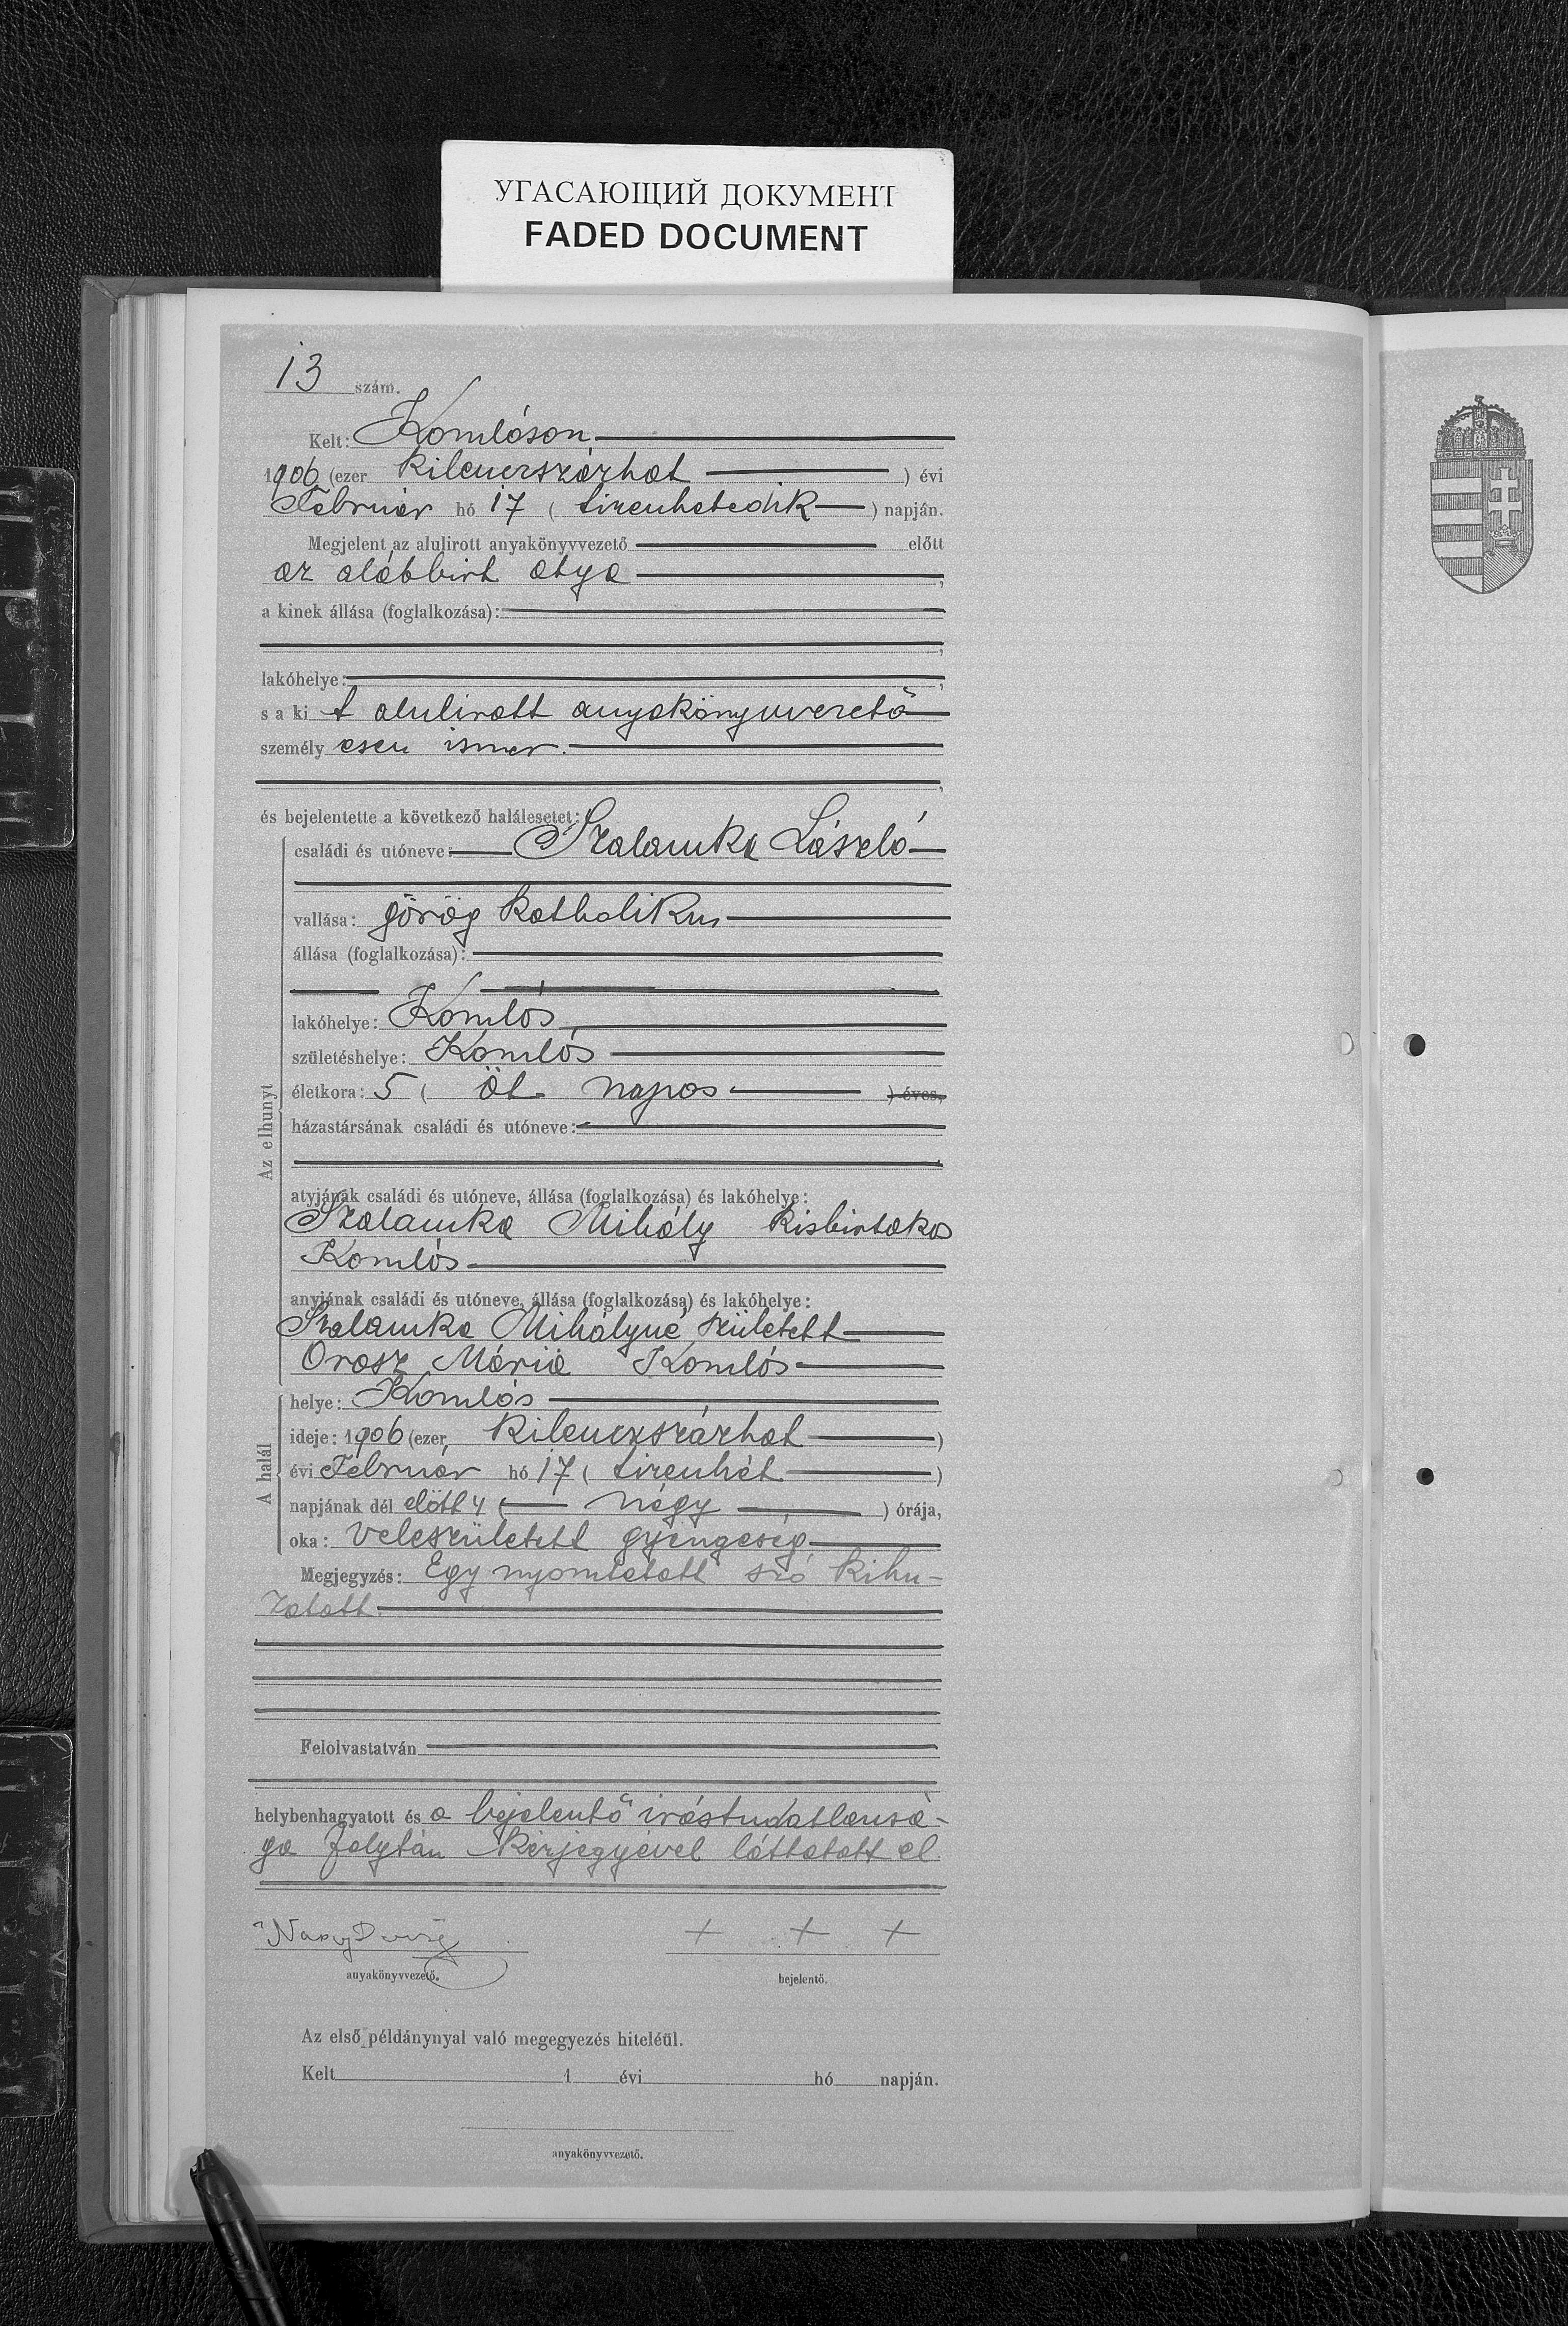 УГАСАЮЩИЙ ДОКУМЕНТ
FADED DOCUMENT
13 szám.
Kelt: Komlóson
1906 (ezer kilenczszázhat ) évi
Február hó 17 ( tizenhetedik ) napján.
Megjelent az alulirott anyakönyvvezető előtt
az alábbirt atya ,
a kinek állása (foglalkozása):
,
lakóhelye: ,
s a ki t alulirott anyakönyvvezető
személy esen ismer.
,
és bejelentette a következő halálesetet:
Az elhunyt
családi és utóneve: Szalanka László
vallása: görög katholikus
állása (foglalkozása):
lakóhelye: Komlós
születéshelye: Komlós
életkora: 5 ( öt napos ) éves,
házastársának családi és utóneve:
atyjának családi és utóneve, állása (foglalkozása) és lakóhelye:
Szalanka Mihály kisbirtokos
Komlós
anyjának családi és utóneve, állása (foglalkozása) és lakóhelye:
Szalanka Mihályné született
Orosz Mária Komlós
A halál
helye: Komlós
ideje: 1906 (ezer kilenczszázhat )
évi Február hó 17 ( tizenhét )
napjának dél előtt 4 ( négy ) órája,
oka: veleszületett gyengeség
Megjegyzés: Egy nyomtatott szó kihu-
zatott.
Felolvastatván
helybenhagyatott és a bejelentő irástudatlansá-
ga folytán kézjegyével láttatott el
+ + +
anyakönyvvezető. bejelentő.
Az első példánynyal való megegyezés hiteléül.
Kelt 1 évi hó napján.
anyakönyvvezető.